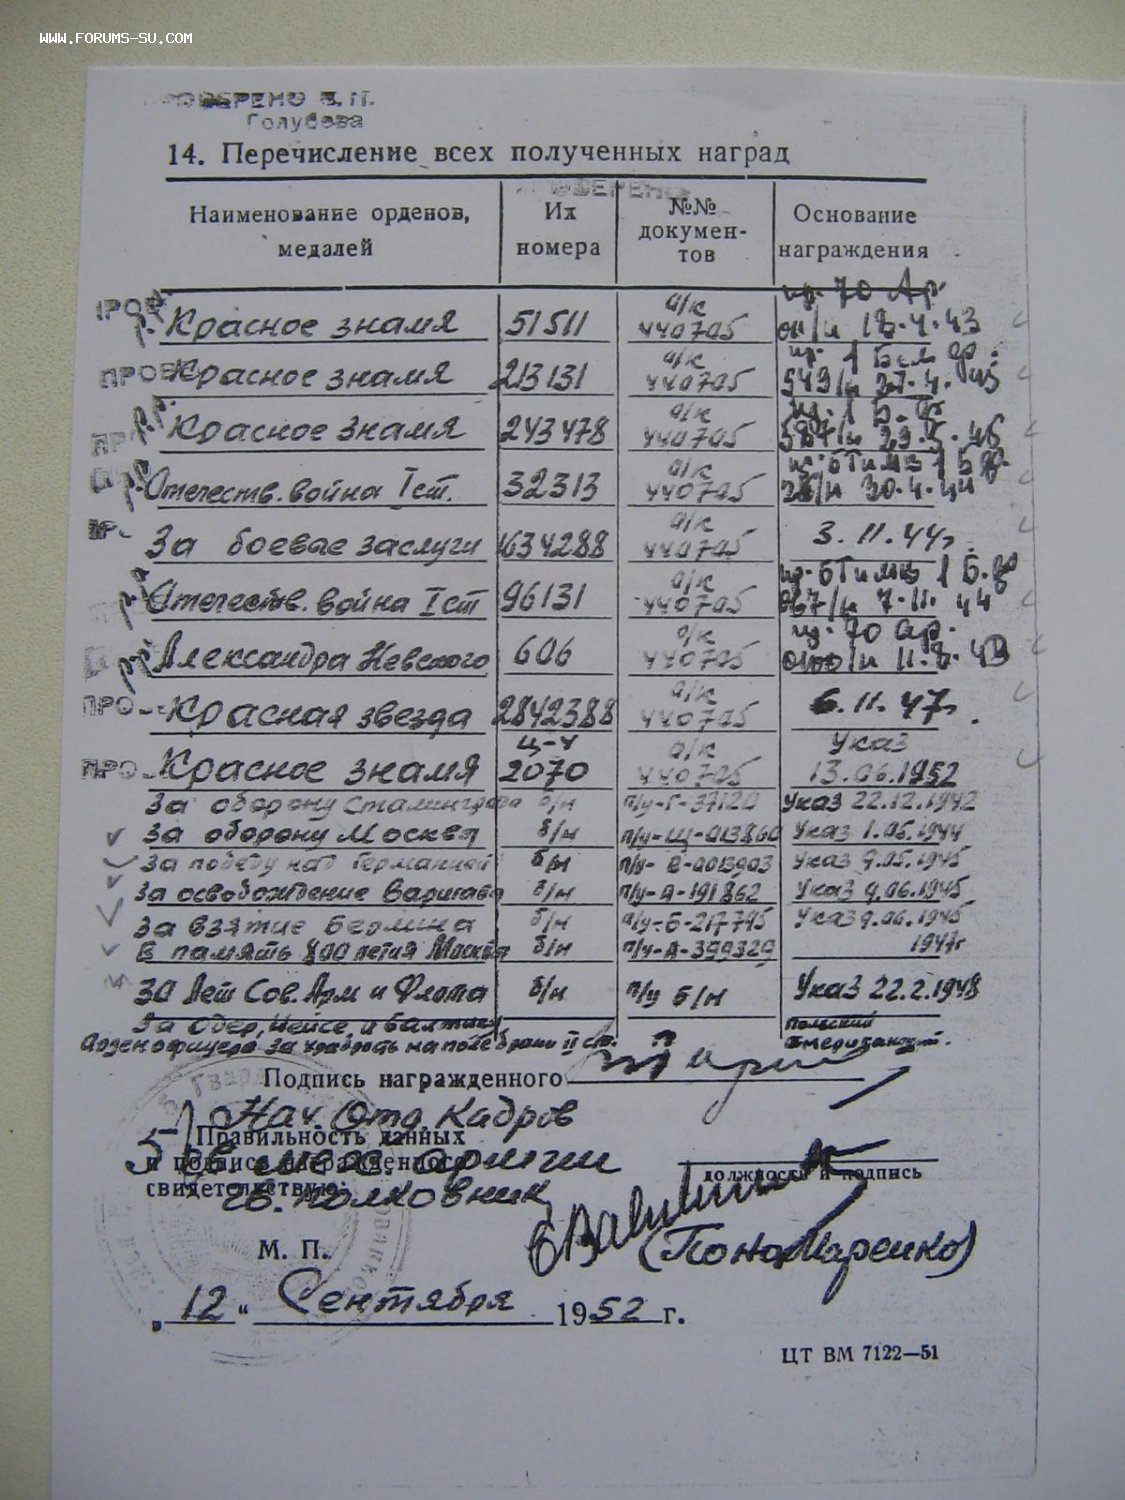 WWW.FORUMS-SU.COM
ПРОВЕРЕНО
Голубева
14. Перечисление всех полученных наград
Наименование орденов, медалей
Их номера
№№ документов
Основание награждения
Красное знамя 51511 о/к 440705 пр. 70 Ар. 18.4.43
Красное знамя 213131 о/к 440705 пр. 1 Бел. фр. 549/н
Красное знамя 243478 о/к 440705 пр. 1 Б. ф. 587/н
Отечеств. война I ст. 32313 о/к 440705 30.4.44
За боевые заслуги 1634288 о/к 440705 3.11.44г.
Отечеств. война I ст 96131 о/к 440705 7.11.44
Александра Невского 606 о/к 440705 пр. 70 ар.
Красная звезда 2842388 о/к 440705 6.11.47г.
Красное знамя 2070 о/к 440705 Указ 13.06.1952
За оборону Сталинграда б/н п/у-Г-37120 Указ 22.12.1942
За оборону Москвы б/н п/у-Щ-013860 Указ 1.05.1944
За победу над Германией б/н п/у- Указ 9.05.1945
За освобождение Варшавы б/н п/у-А-191862 Указ 9.06.1945
За взятие Берлина б/н п/у-Б-217745 Указ 9.06.1945
В память 800 летия Москвы б/н п/у-А-399329 1947г
30 лет Сов. Арм и Флота б/н п/у б/н Указ 22.2.1948
За Одер, Нейсе, и Балтику Польский
Орден офицера за храбрость на поле брани II ст.
Подпись награжденного
Нач. Отд. Кадров
Правильность данных
и подписи награжденного
свидетельствую:
армии
полковник
должность и подпись
(Пономаренко)
М. П.
„12“ Сентября 1952 г.
ЦТ ВМ 7122—51